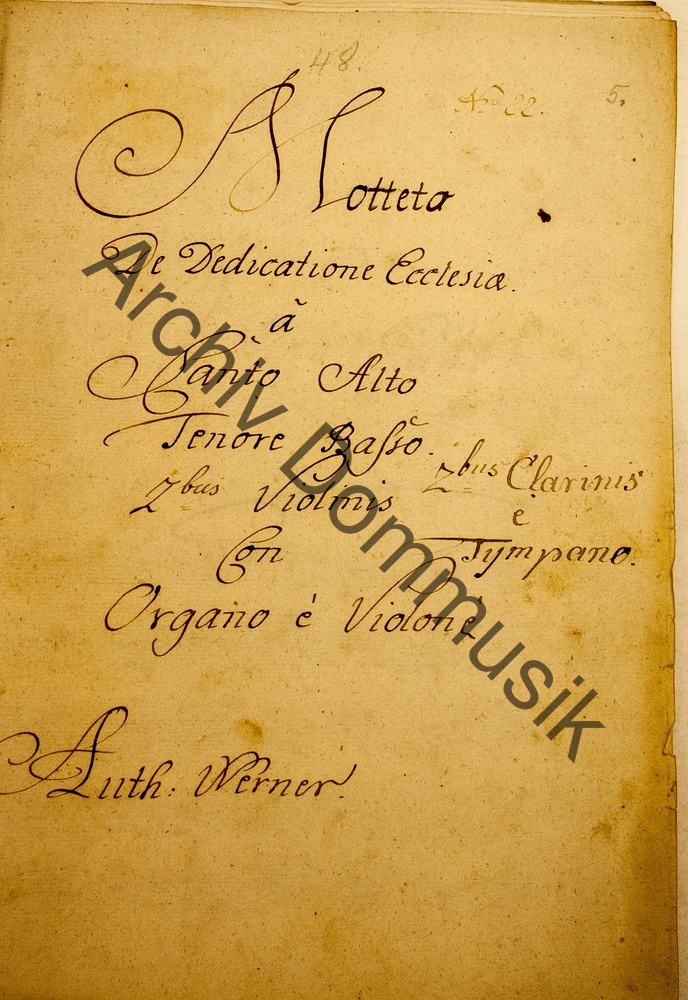 48.
No 22.
5.
Motteta
De Dedicatione Ecclesiæ.
ã
Canto Alto
Tenore Baſso.
2bus Violinis 2bus Clarinis
è
Con Tympano.
Organo è Violone
Auth: Werner.
Archiv Dommusik